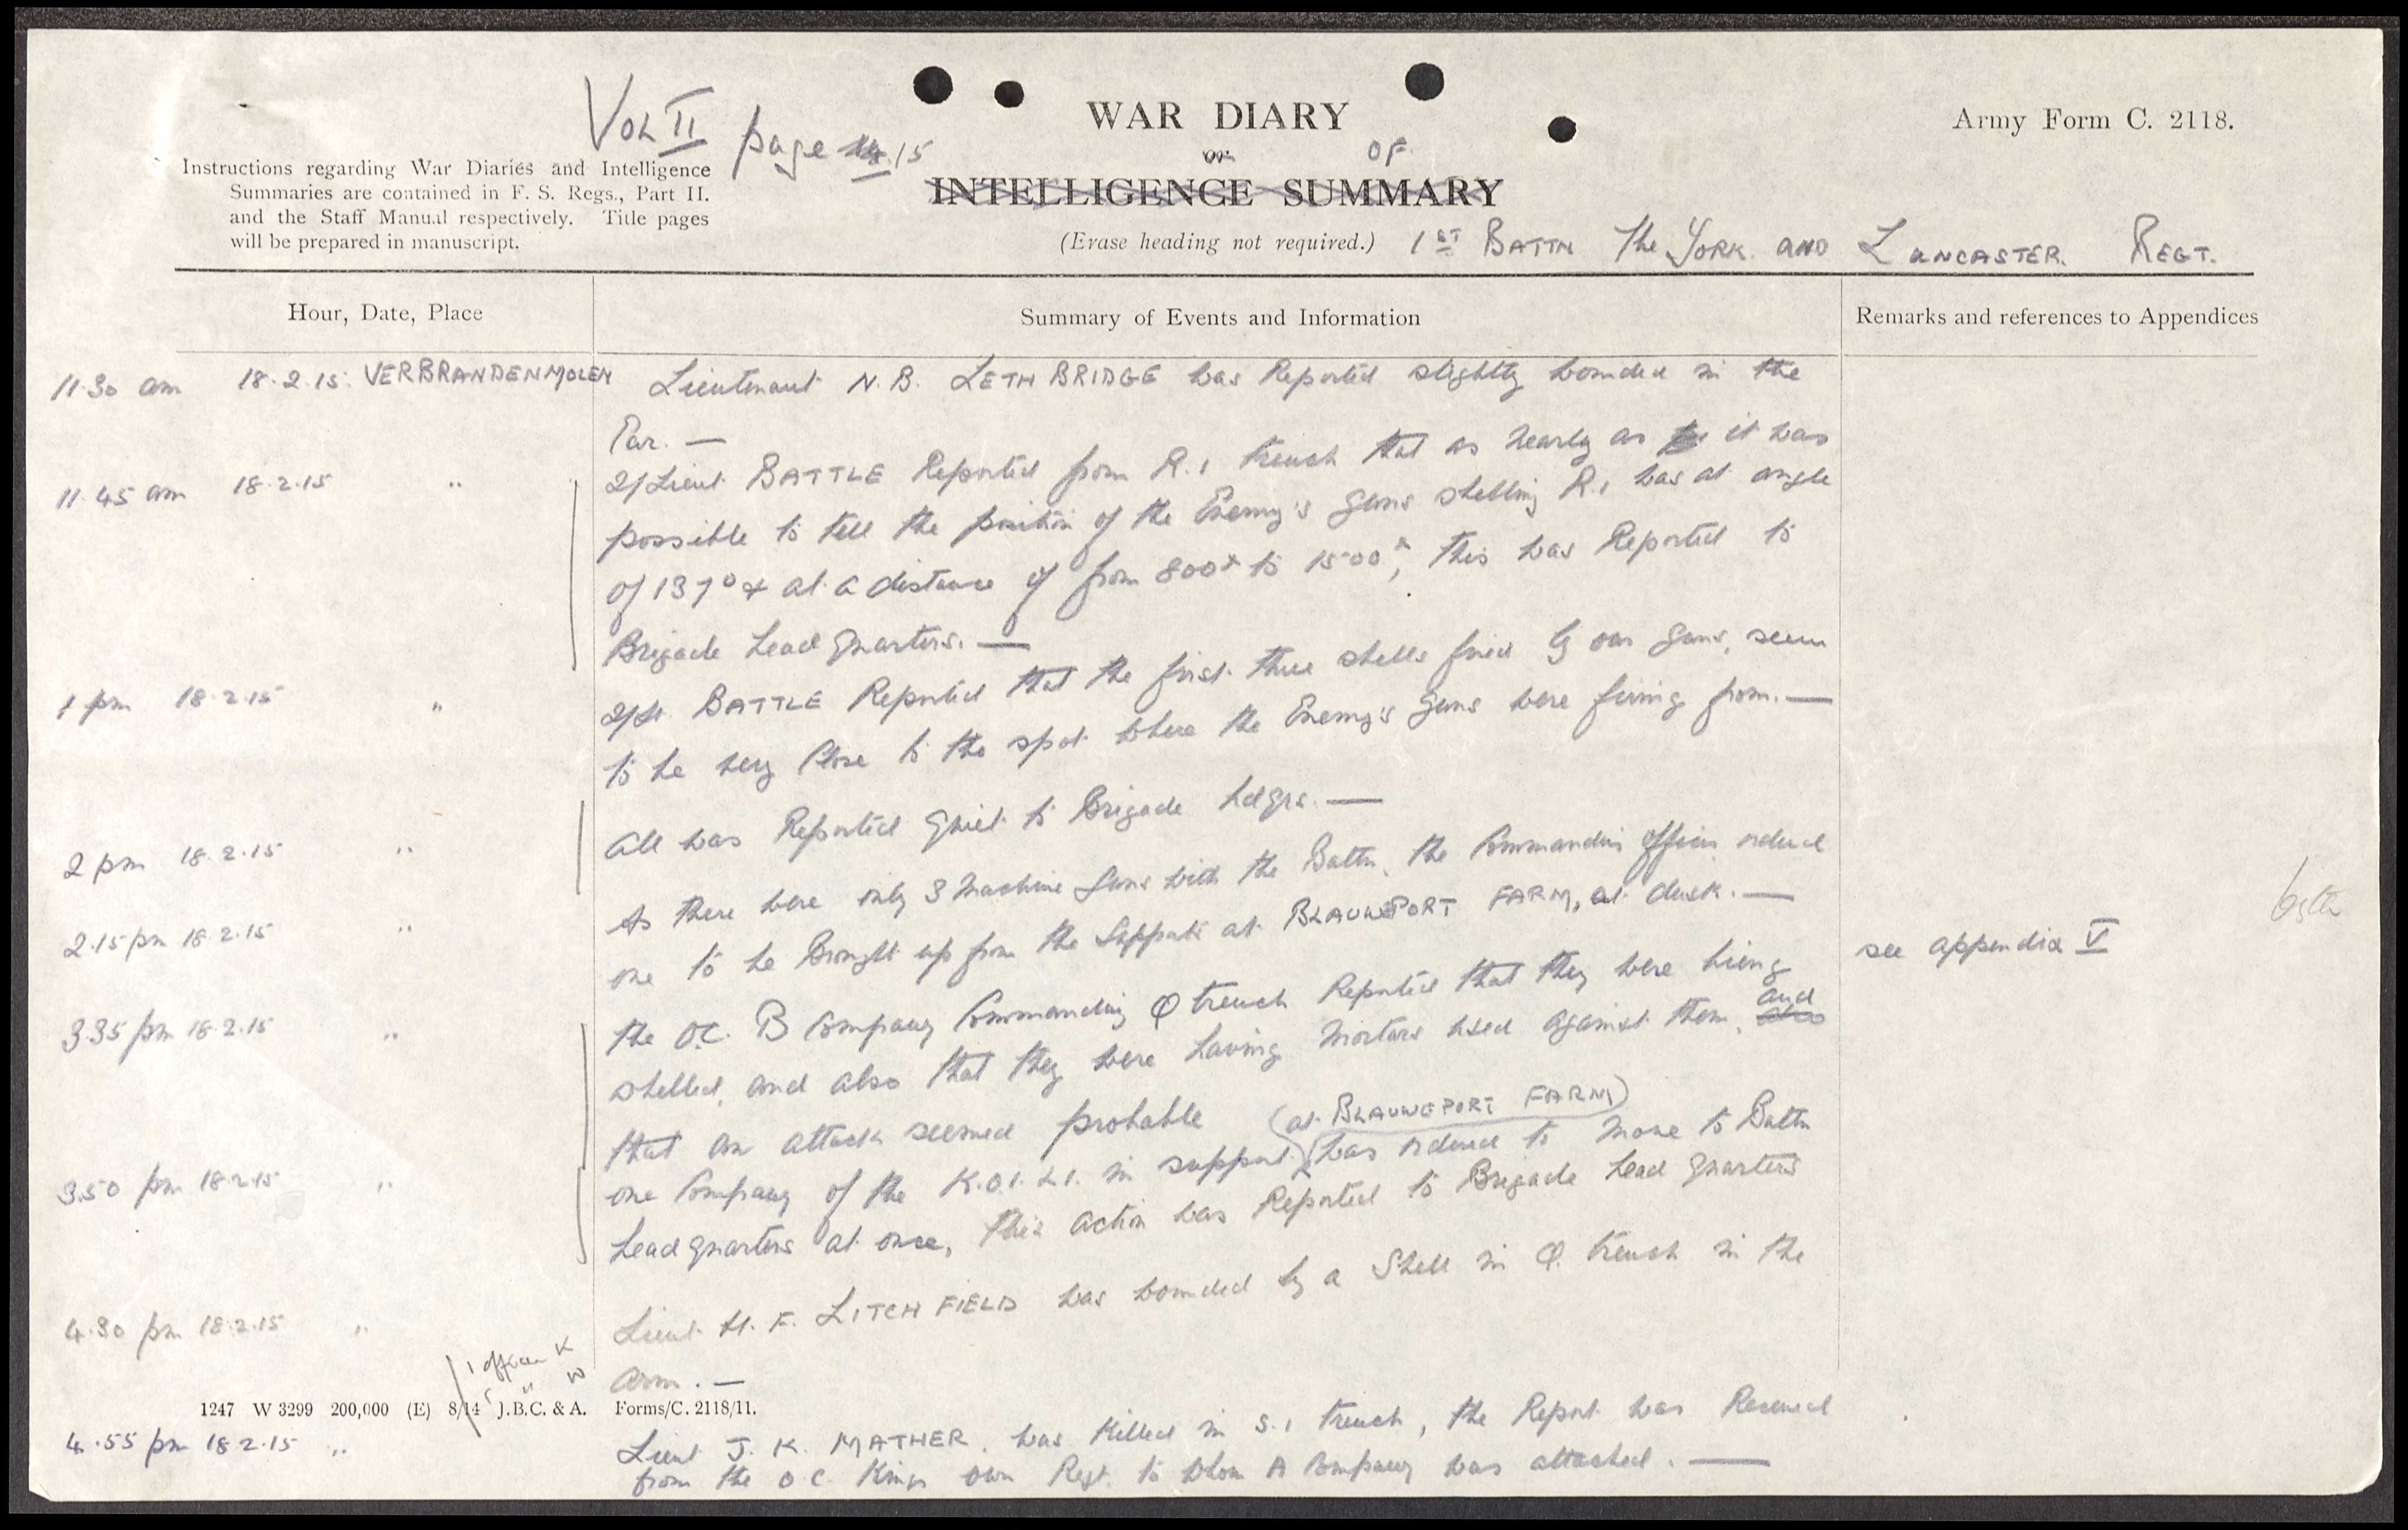 VOL II page 15
WAR DIARY
Army Form C. 2118.
or OF
INTELLIGENCE SUMMARY
Instructions regarding War Diaries and Intelligence
Summaries are contained in F. S. Regs., Part II.
and the Staff Manual respectively. Title pages
will be prepared in manuscript.
(Erase heading not required.) 1ST BATTN The YORK AND LANCASTER. REGT.
Hour, Date, Place
Summary of Events and Information
Remarks and references to Appendices
11.30 am 18.2.15. VERBRANDENMOLEN Lieutenant N.B. LETHBRIDGE was Reported slightly wounded in the
Ear. —
11.45 am 18.2.15 " 2/Lieut BATTLE Reported from R.1 trench that as nearly as it was
possible to tell the position of the Enemy's Guns shelling R.1 was at angle
of 137° & at a distance of from 800x to 1500x, this was Reported to
Brigade Head Quarters. —
1 pm 18.2.15 " 2/Lt BATTLE Reported that the first three shells fired by our Guns, seem
to be very Close to the spot where the Enemy's Guns were firing from. —
2 pm 18.2.15 " All was Reported Quiet to Brigade Hdqrs. —
2.15 pm 18.2.15 " As there were only 3 Machine Guns with the Battn, the Commanding Officer ordered
one to be Brought up from the Supports at BLAUWEPORT FARM, at dusk. —
see appendix V
3.35 pm 18.2.15 " the O.C. B Company Commanding Q trench Reported that they were being
shelled, and also that they were having Mortars used against them, also and
that an attack seemed probable
3.50 pm 18.2.15 " one Company of the K.O.Y.L.I. in support (at BLAUWEPORT FARM) was ordered to Move to Battn
Head Quarters at once, this action was Reported to Brigade Head Quarters
4.30 pm 18.2.15 " Lieut H. F. LITCHFIELD was wounded by a Shell in Q. trench in the
Arm. —
1 officer K
" W
1247 W 3299 200,000 (E) 8/14 J.B.C. & A. Forms/C. 2118/11.
4.55 pm 18.2.15 " Lieut J. K. MATHER. was Killed in S.1 trench, the Report was Received
from the O C. Kings Own Regt. to whom A Company was attached. —